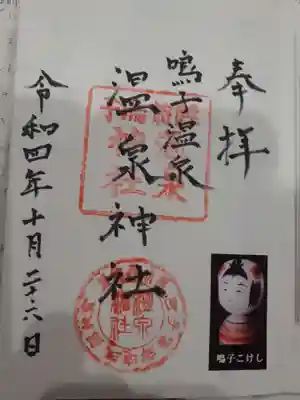 奉拝
鳴子温泉
温泉神社
令和四年十月二十六日
鳴子こけし